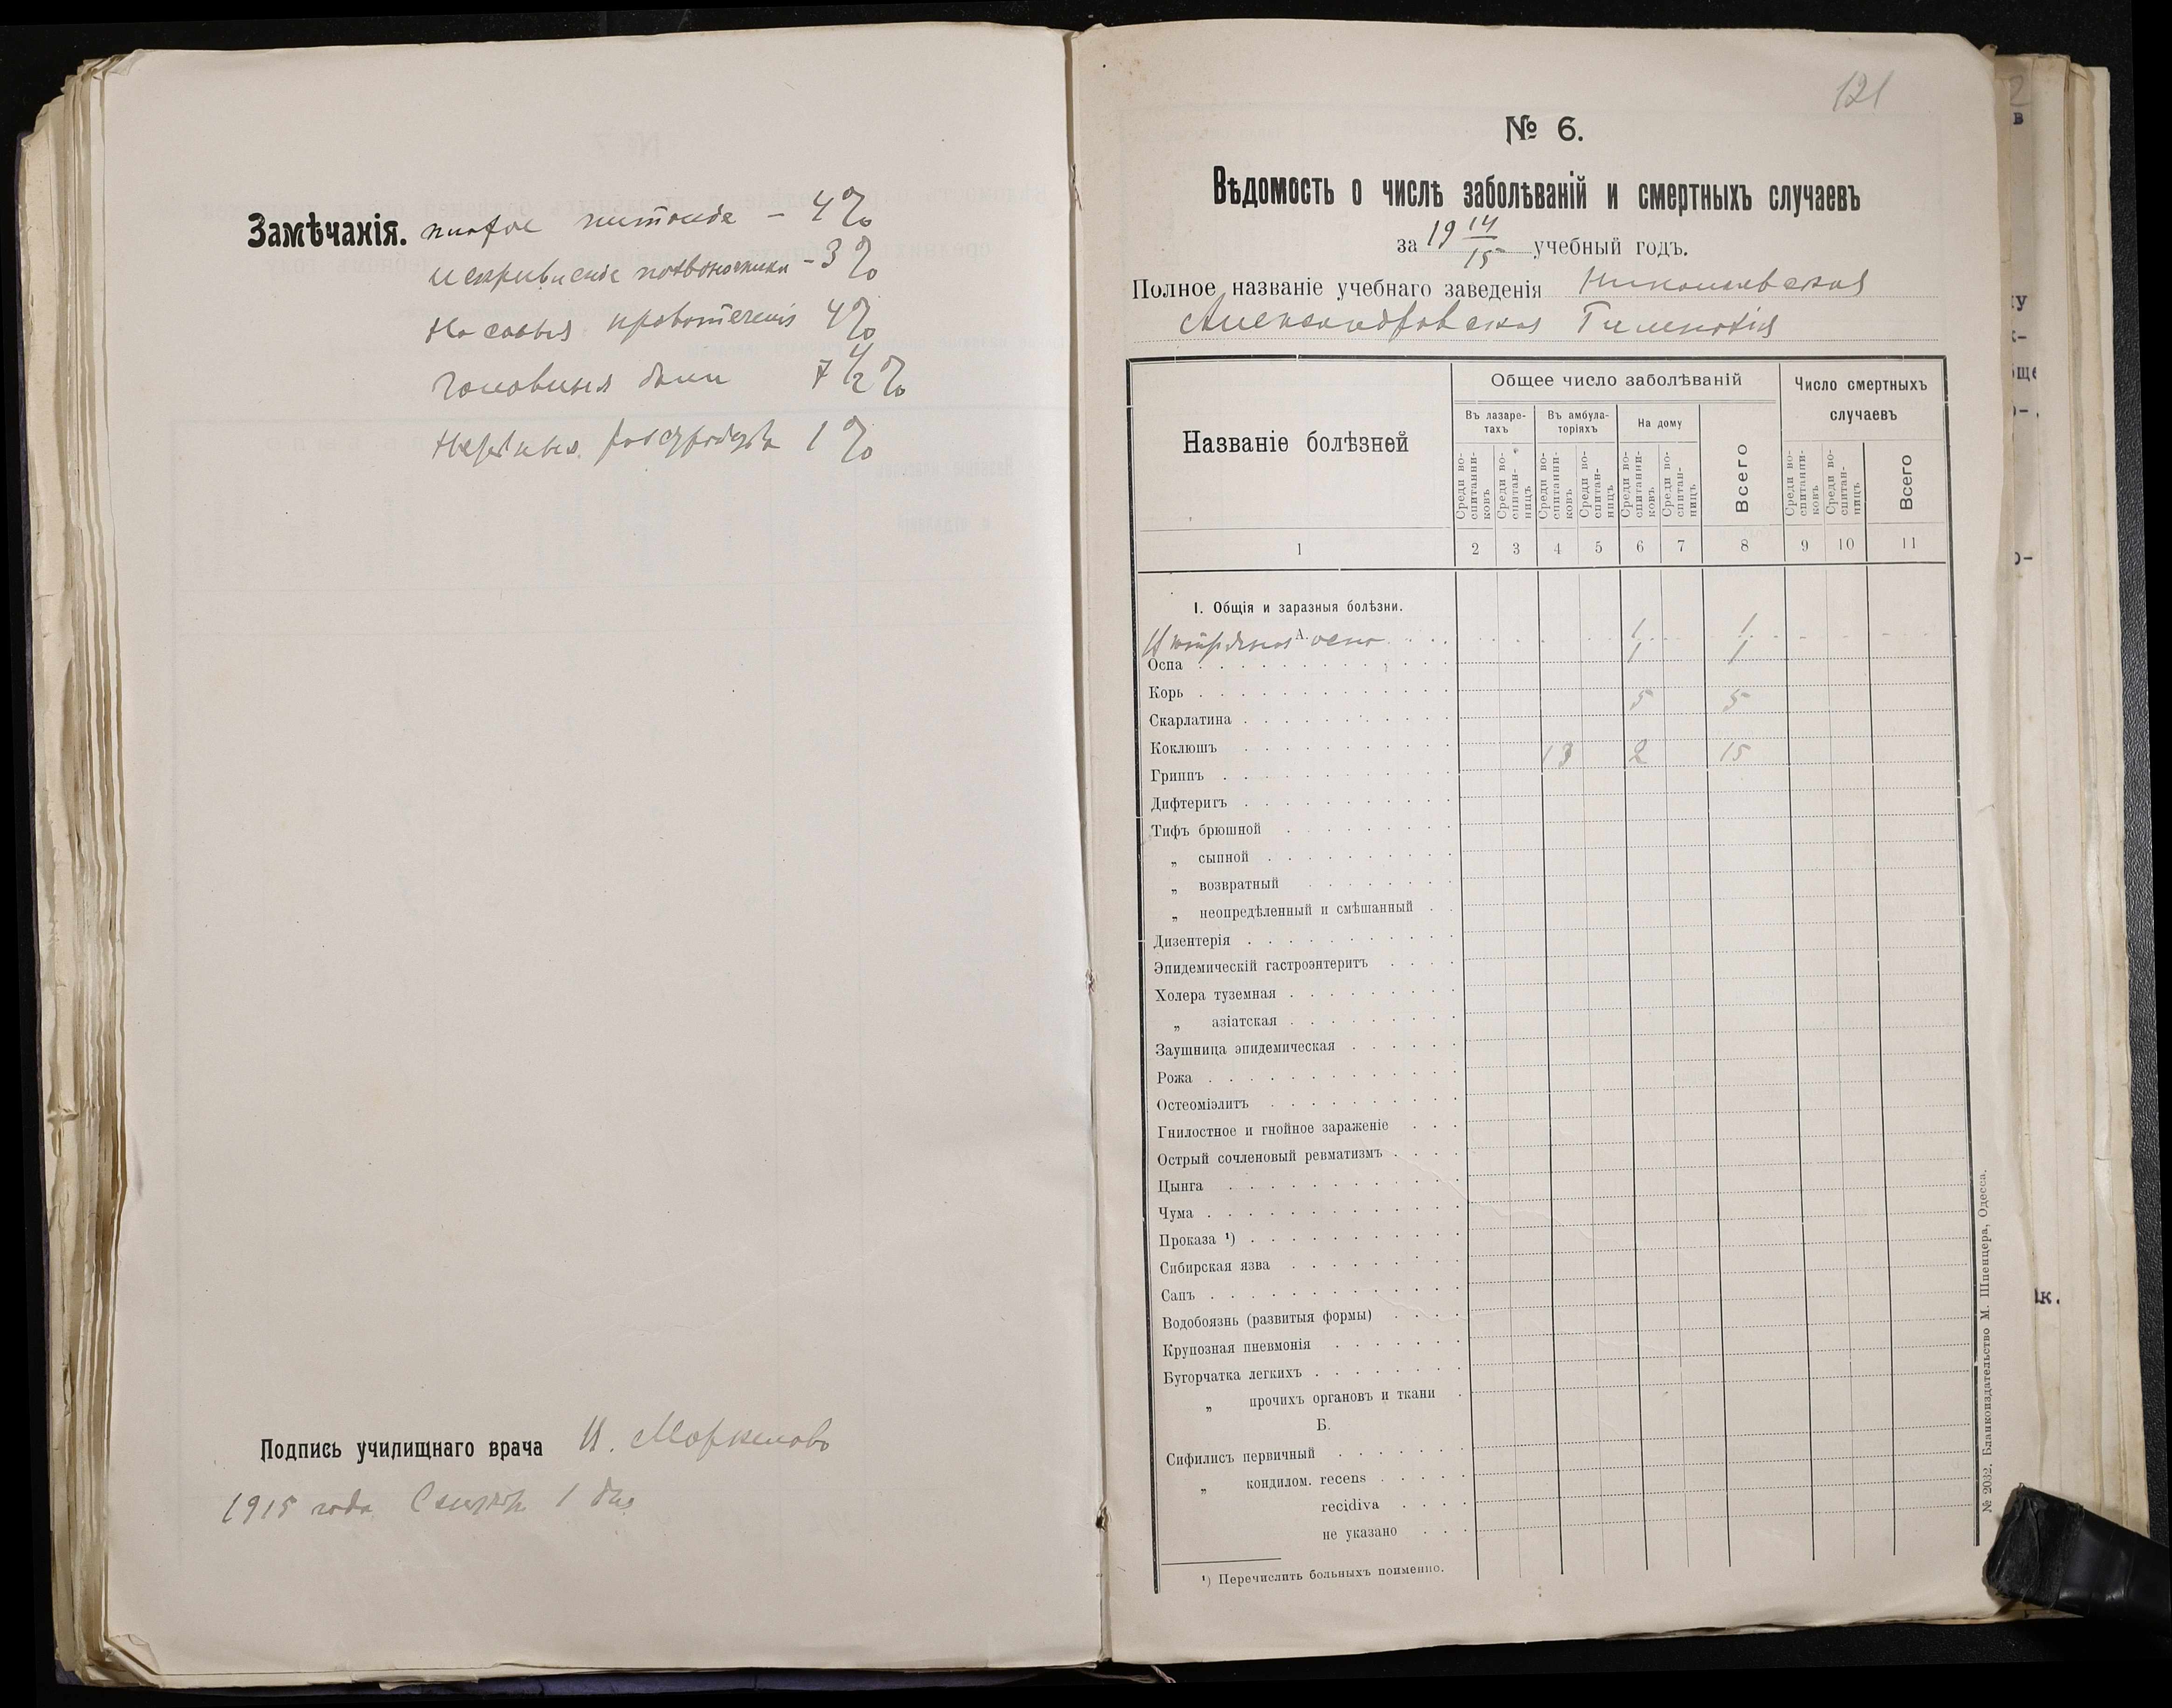 Замѣчанія. плохое питанiе – 4%
искривленiе позвоночника – 3%
Носовыя кровотеченiя 4%
головныя боли 7 1/2 %
Нервныя разстройства 1%
Подпись училищнаго врача И. Маркелов
1915 года 1 дня
121
№ 6.
Вѣдомость о числѣ заболѣваній и смертныхъ случаевъ
за 19 14/15 учебный годъ.
Полное названіе учебнаго заведенія Николаевская
Александровская Гимназія
Названіе болѣзней
Общее число заболѣваній
Число смертныхъ случаевъ
Въ лазаре-тахъ
Въ амбула-торіяхъ
На дому
Всего
Среди во-спитанни-ковъ
Среди во-спитан-ницъ
Среди во-спитанни-ковъ
Среди во-спитан-ницъ
Среди во-спитанни-ковъ
Среди во-спитан-ницъ
Среди во-спитанни-ковъ
Среди во-спитан-ницъ
Всего
1 2 3 4 5 6 7 8 9 10 11
I. Общія и заразныя болѣзни.
А. оспа 1 1
Оспа 1 1
Корь 5 5
Скарлатина
Коклюшъ 13 2 15
Гриппъ
Дифтеритъ
Тифъ брюшной
„ сыпной
„ возвратный
„ неопредѣленный и смѣшанный
Дизентерія
Эпидемическій гастроэнтеритъ
Холера туземная
„ азіатская
Заушница эпидемическая
Рожа
Остеоміэлитъ
Гнилостное и гнойное зараженіе
Острый сочленовый ревматизмъ
Цынга
Чума
Проказа ¹)
Сибирская язва
Сапъ
Водобоязнь (развитыя формы)
Крупозная пневмонія
Бугорчатка легкихъ
„ прочихъ органовъ и ткани
Б.
Сифилисъ первичный
„ кондилом. recens
recidiva
не указано
¹) Перечислить больныхъ поименно.
№ 2032. Бланкоиздательство М. Шпенцера, Одесса.